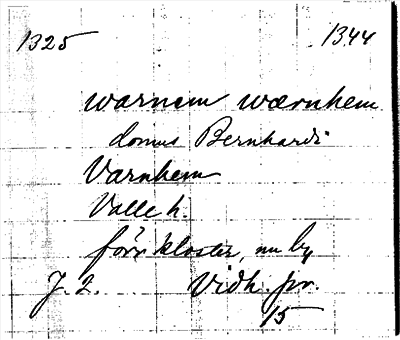 1325 1344
warnem wærnhem
domus Bernhardi
Varnhem
Valle h.
förr kloster, nu by
J. 2. Vidh. pr.
15